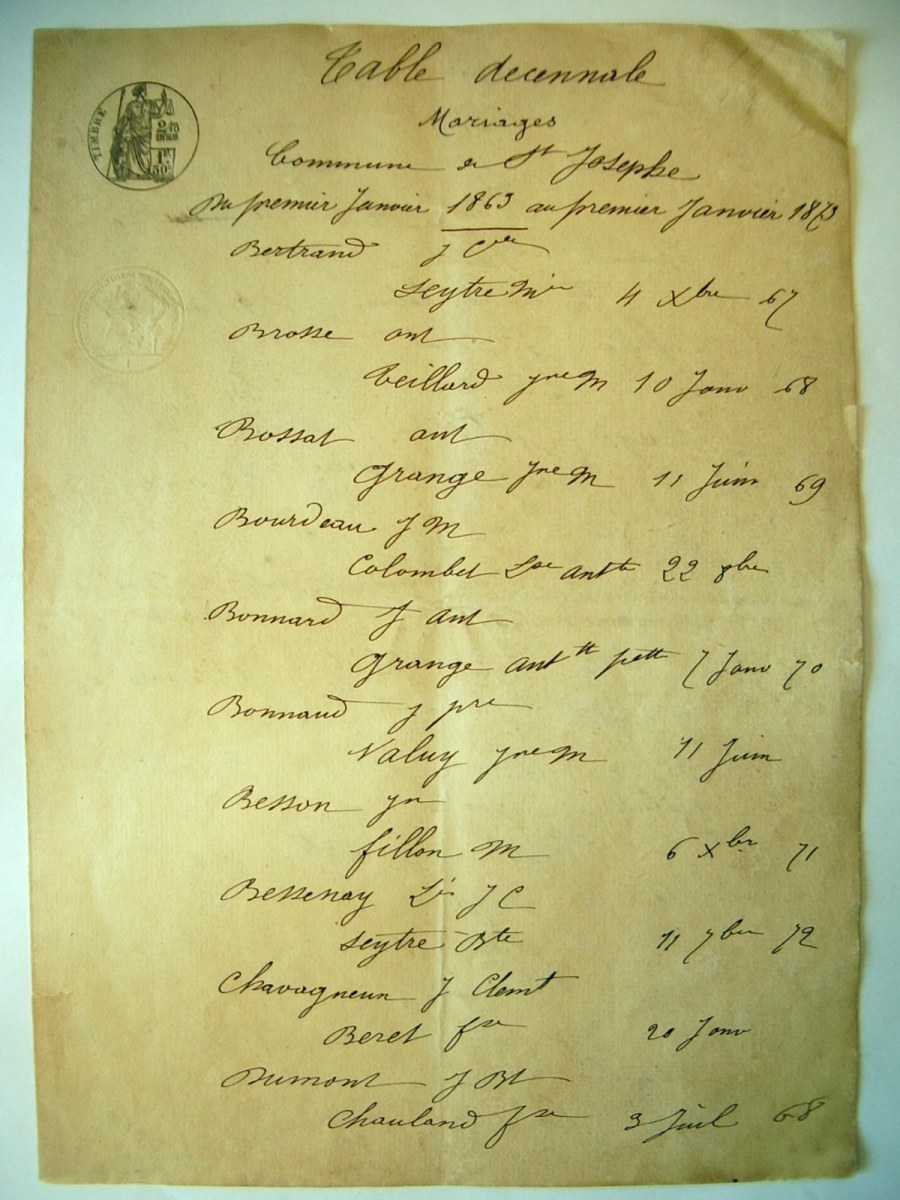 Table decennale
Mariages
TIMBRE
Commune de St Josephe
Du premier Janvier 1863 au premier Janvier 1873
Bertrand J Cde
Seytre Mie 4 Xbre 67
Brosse ant
Teillard Jne M 10 Janv 68
Bossat ant
Grange Jne M 11 Juin 69
Bourdeau J M
Colombet Antte 22 8bre
Bonnard J ant
Grange antte pette 7 Janv 70
Bonnaud J pre
Valuy Jne M 11 Juin
Besson Jn
fillon M 6 Xbr 71
Bessenay Ls J C
Seytre Bte 11 7bre 72
Chavagneun J Clemt
Beret fse 20 Janv
Dumont J Bt
Chauland fse 3 Juil 68